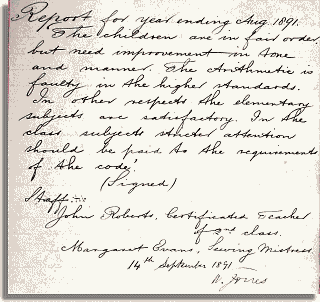 Report for year ending Aug 1891.
The children are in fair order,
but need improvement in tone
and manner. The Arithmetic is
faulty in the higher standards.
In other respects the elementary
subjects are satisfactory. In the
class subjects stricter attention
should be paid to the requirements
of the code.'
(Signed)
Staff:-
John Roberts, Certificated Teacher
of 2nd class.
Margaret Evans, Sewing Mistress.
14th September 1891
Jones